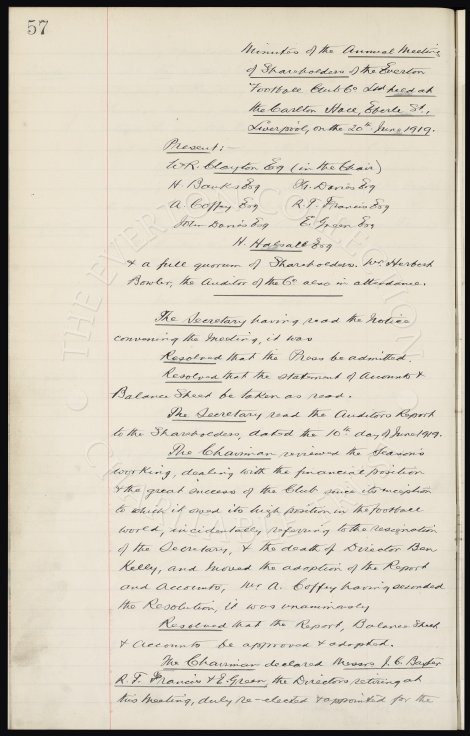 57
Minutes of the Annual Meeting
of Shareholders of the Everton
Football Club Co Ltd held at
the Carlton Hall, Eberle St.,
Liverpool, on the 20th June 1919.
Present:-
W.R. Clayton Esq (in the Chair)
H. Banks Esq Dr. Davies Esq
A. Coffey Esq R.T. Francis Esq
John Davies Esq E. Green Esq
H. Halsall Esq
& a full quorum of Shareholders. Mr Herbert
Bowler, the Auditor of the Co also in attendance.
The Secretary having read the Notice
convening the Meeting, it was
Resolved that the Press be admitted.
Resolved that the statement of Accounts &
Balance Sheet be taken as read.
The Secretary read the Auditors Report
to the Shareholders, dated the 10th day of June 1919.
The Chairman reviewed the Season's
working, dealing with the financial position
& the great success of the Club since its inception
to which it owed its high position in the football
world, incidentally referring to the resignation
of the Secretary, & the death of Director Ben
Kelly, and moved the adoption of the Report
and Accounts, Mr A. Coffey having seconded
the Resolution, it was unanimously
Resolved that the Report, Balance Sheet
& Accounts be approved & adopted.
The Chairman declared Messrs J.C. Baxter
R.T. Francis & E. Green, the Directors retiring at
this Meeting, duly re-elected & appointed for the
THE EVERTON COLLECTION